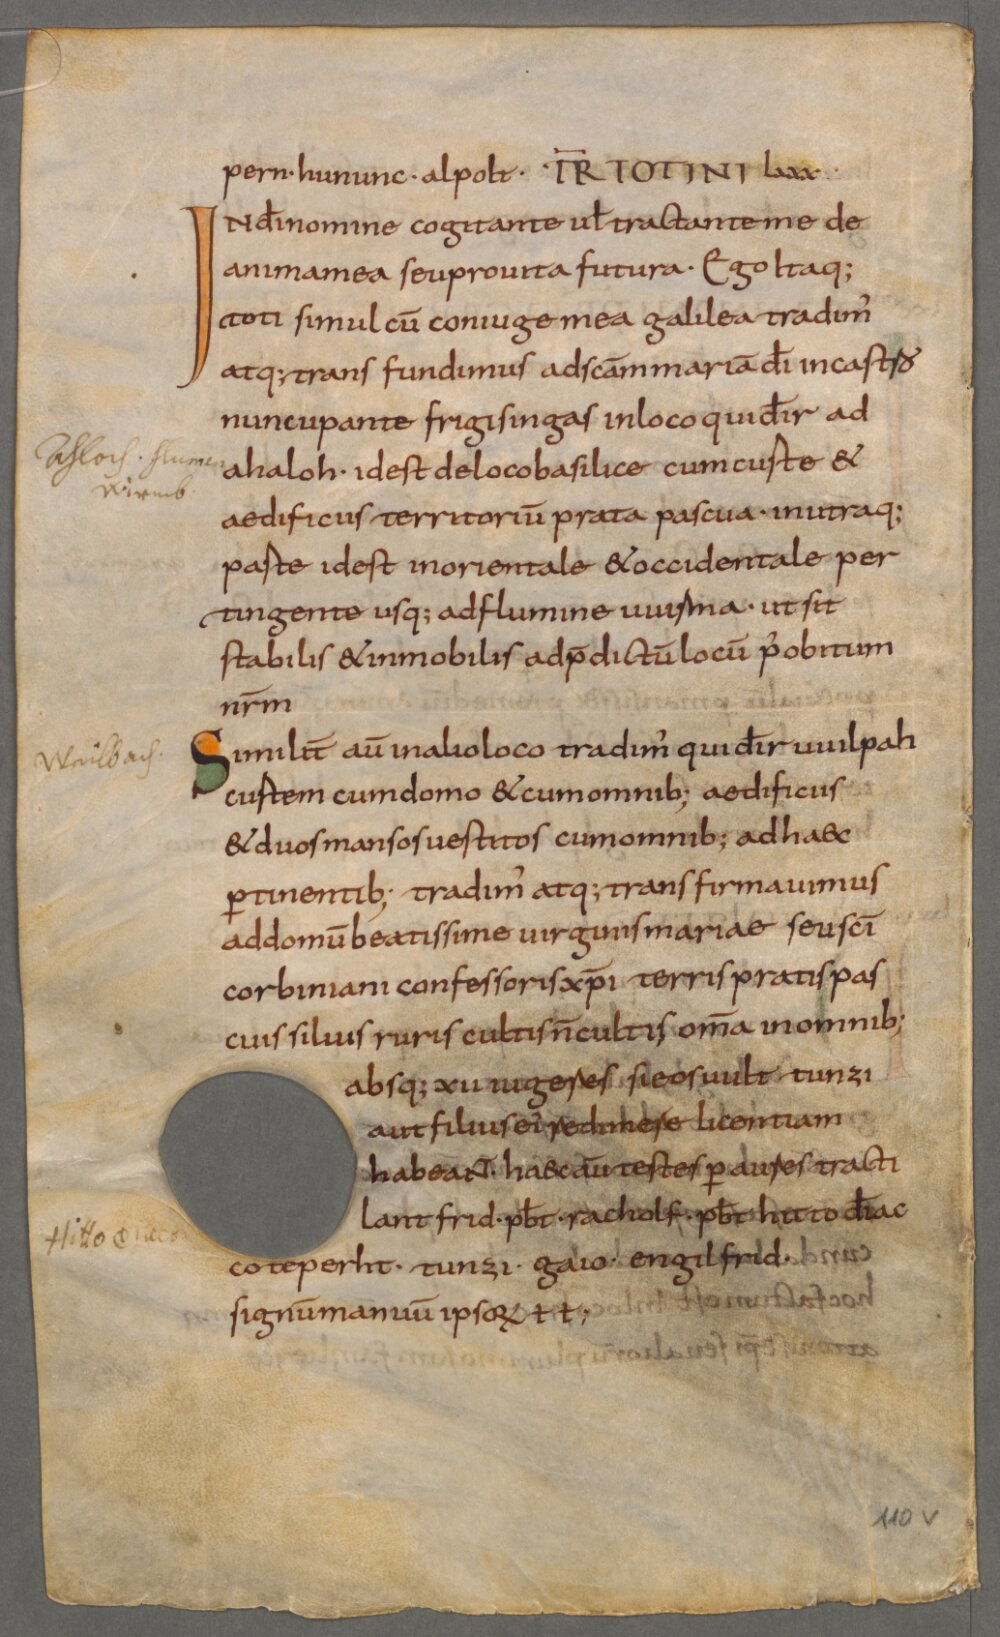 pern· hununc· alpolt· T̄R TOTINI lxx
INdīnomine cogitante ul̄ tractante me de
anima mea seu pro uita futura· Ego ltaq;
toti simul cū coniuge mea galilea tradim᾽
atq; trans fundimus ad scām mariā dī in castro
nuncupante frigisingas in loco qui dr̄ ad
Ahloch· flumen
Wirmb·
ahaloh· id est de loco basilice cum curte &
aedificiis territoriū prata pascua· in utraq;
parte id est in orientale & occidentale per
tingente usq; ad flumine uuirma· ut sit
stabilis & inmobilis ad p̄dictū locū p᾽ obitum
nr̄m
Weilbach·
Similit̄ aū in alio loco tradim᾽ qui dr̄ uuilpah
curtem cum domo & cum omnib; aedificiis
& duos mansos uestitos cum omnib; ad haec
ꝑtinentib; tradim᾽ atq; trans firmauimus
ad domū beatissime uirginis mariae seu scī
corbiniani confessoris xp̄i terris pratis pas
cuis siluis ruris cultis n̄ cultis, om̄a in omnib;
absq; xii iugeres si eos uult tunzi
aut filius ei᾽ redimere licentiam
habeant· haec aū testes ꝑ aures tracti
lantfrid· pb̄t· racholf· pb̄t hitto diac̄
Hitto Diaco
coteperht· tunzi· gaio· engilfrid·
signū manuū ipsoꝝ ✝✝;
110 v